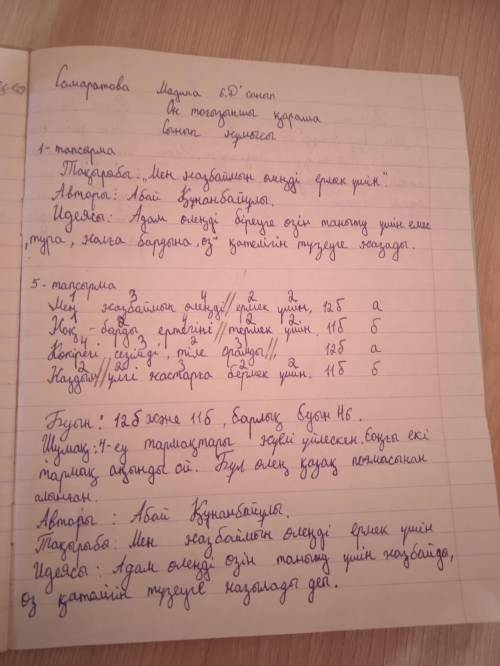 Самаратова Мадина 6 "Д" сынып
Он тоғызыншы қараша
Сынып жұмысы
1-тапсырма
Тақырабы: „Мен жазбаймын өлеңді ермек үшін".
Авторы: Абай Құнанбайұлы.
Идеясы: Адам өлеңді біреуге өзін таныту үшін емес
, тура, жалға бардына, өз қателігін түзеуге жазады.
5-тапсырма
1 3 4 2 2
Мен жазбаймын өлеңді // ермек үшін, 12б а
1 2 4 2 2
Жоқ-барды ертегіні // термек үшін. 11б б
4 3 2 3
Көкірегі сезімді, тіле орамды //, 12б а
2 2 3 2 2
Наздым // үлгі жастарға бермек үшін. 11б б
Буын: 12б және 11б, барлық буын 46.
Шумақ: 4-еу тармақтары жүйелі үйлескен. Соңғы екі
тармақ ақынды ой. Бұл өлең қазақ поэмасынан
алынған.
Авторы: Абай Құнанбайұлы.
Тақырыбы: Мен жазбаймын өлеңді ермек үшін
Идеясы: Адам өлеңді өзін таныту үшін жазбайды,
өз қателігін түзеуге жазылады деп.